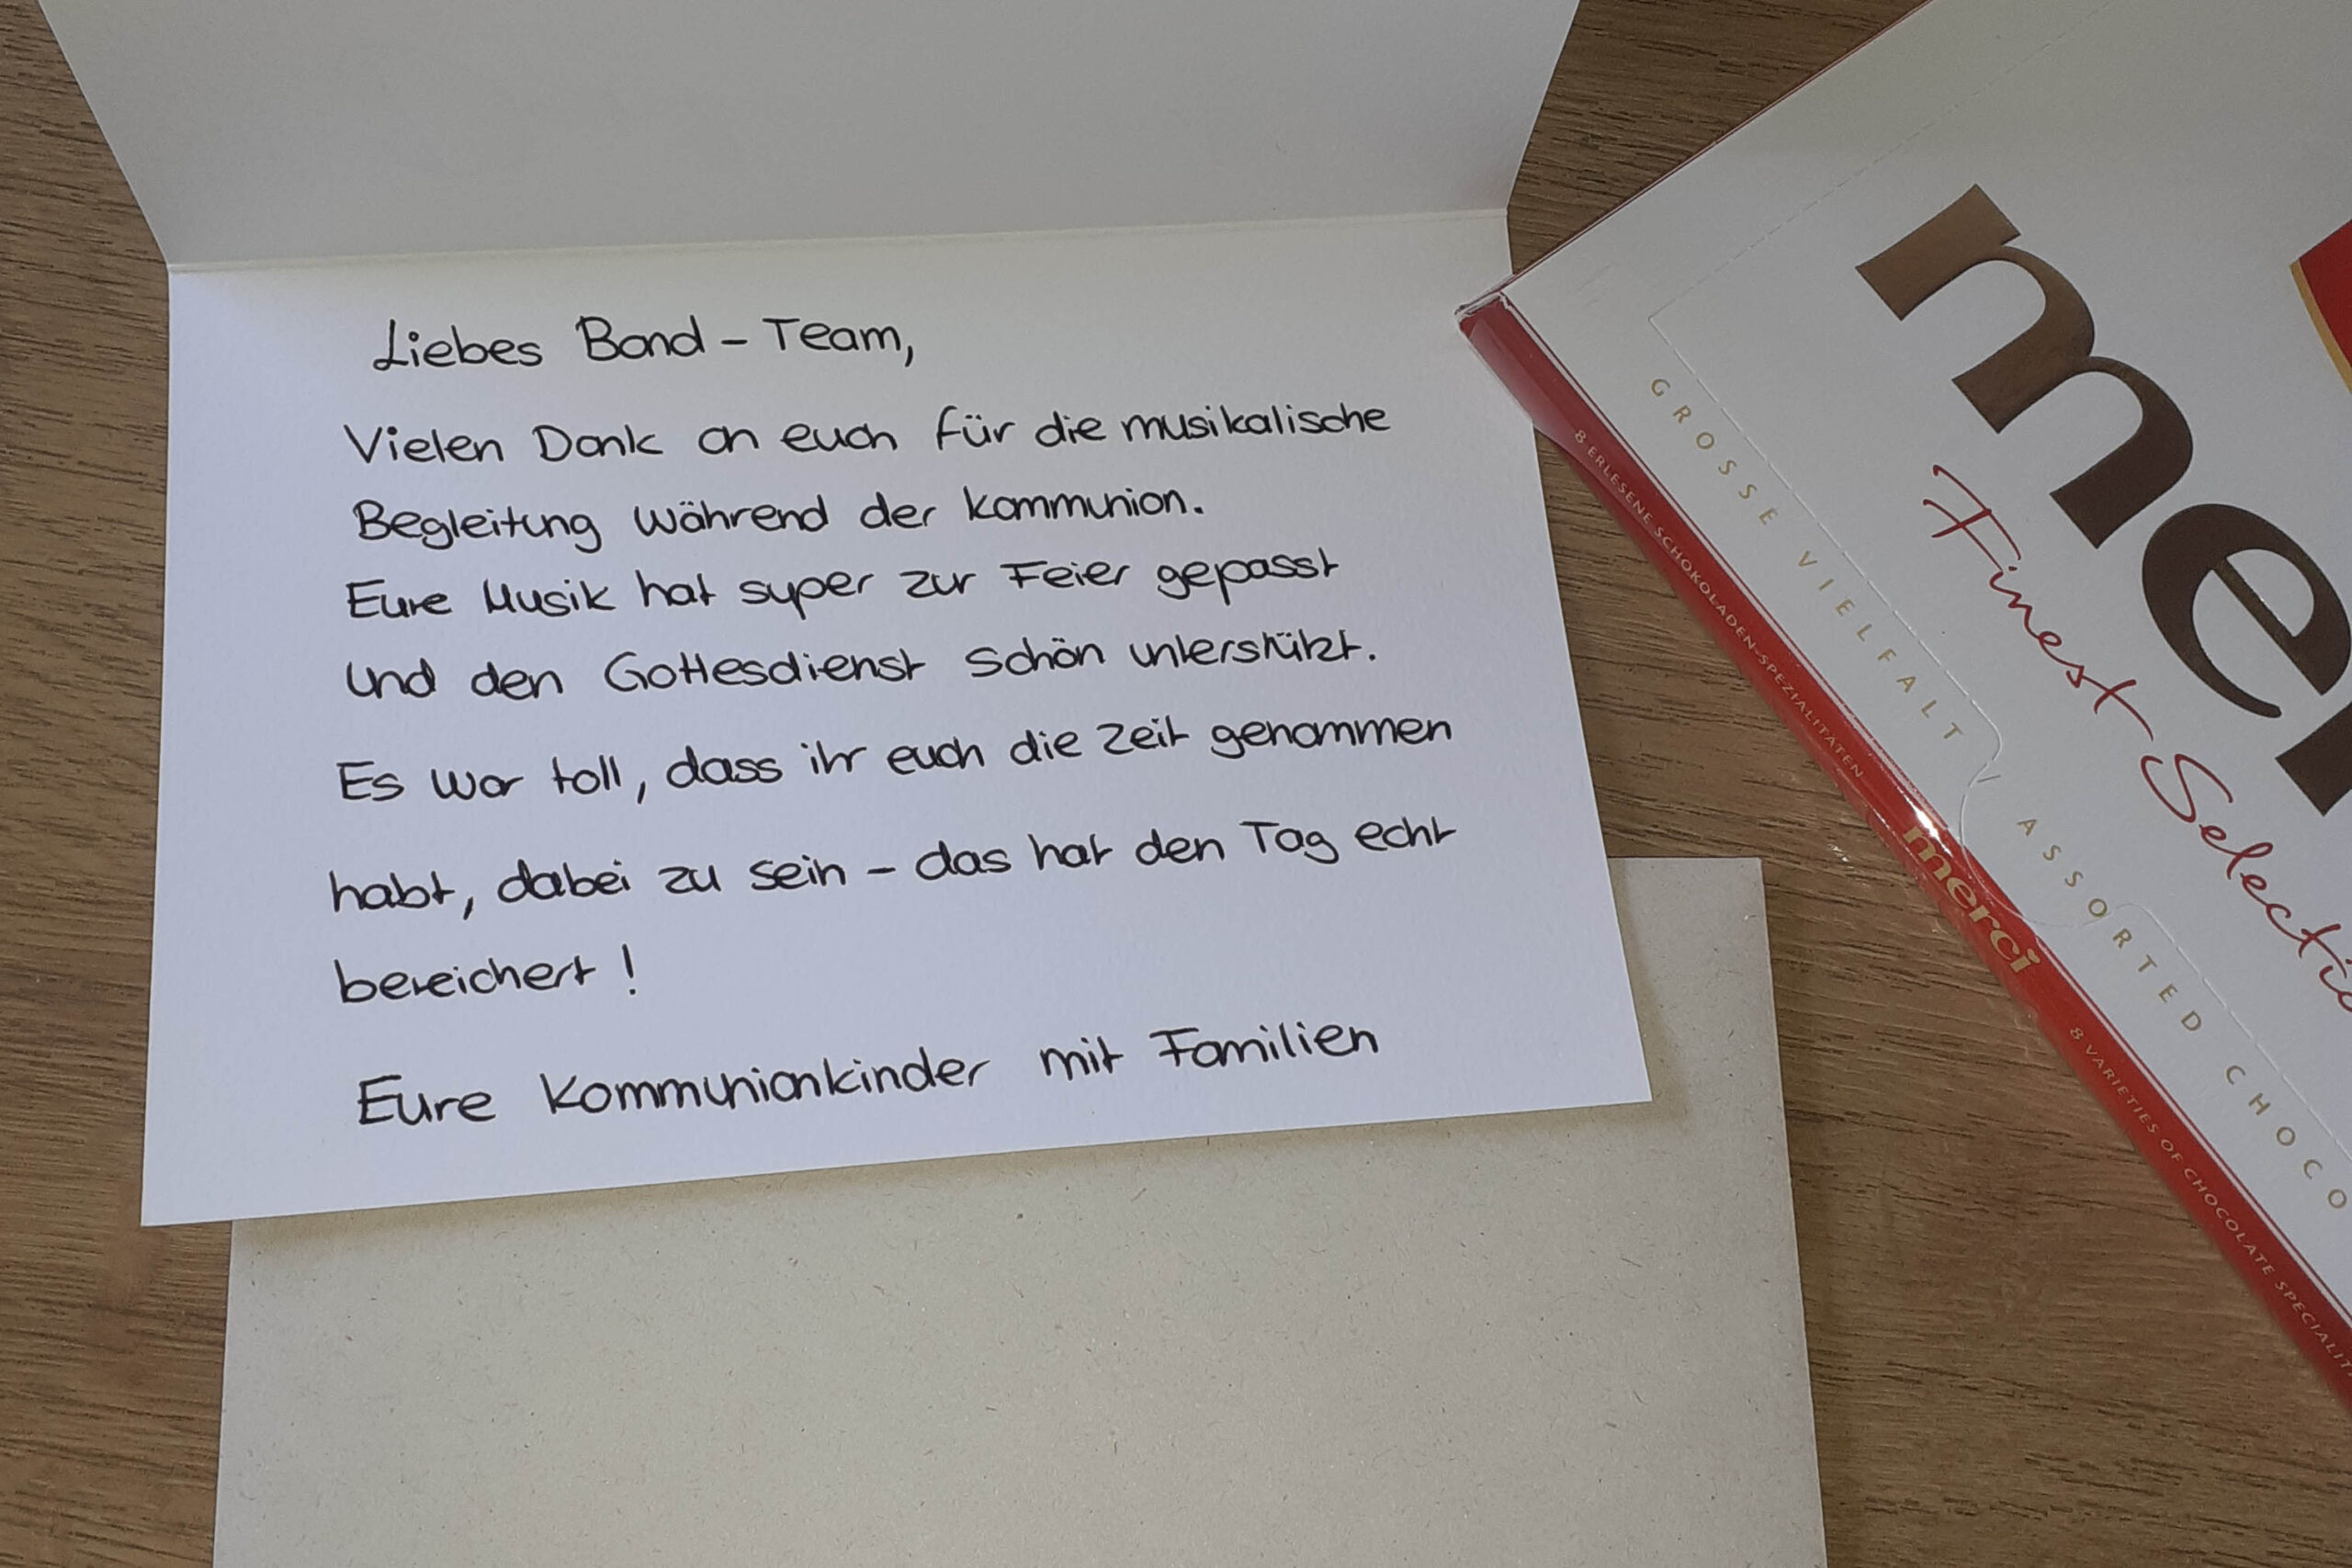 Liebes Band - Team,
Vielen Dank an euch für die musikalische
Begleitung während der Kommunion.
Eure Musik hat super zur Feier gepasst
und den Gottesdienst schön unterstützt.
Es war toll, dass ihr euch die Zeit genommen
habt, dabei zu sein - das hat den Tag echt
bereichert!
Eure Kommunionkinder mit Familien
mer
Finest Selecti
GROSSE VIELFALT / ASSORTED CHOCO
8 ERLESENE SCHOKOLADEN-SPEZIALITÄTEN
merci
8 VARIETIES OF CHOCOLATE SPECIALIT